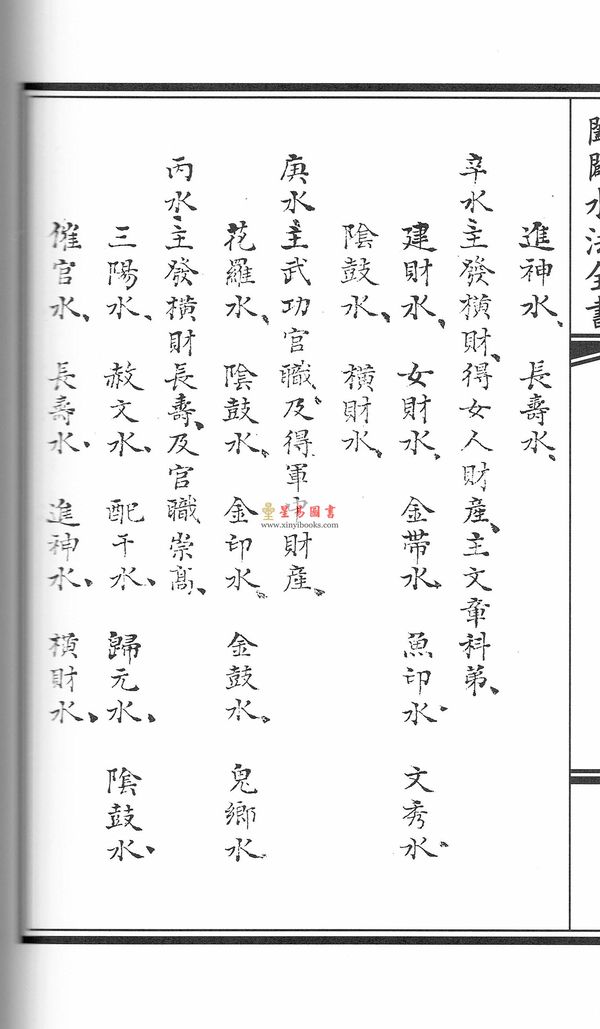 闢闢水法全書
進神水、長壽水、
辛水主發橫財、得女人財產、主文章科第、
建財水、女財水、金帶水、魚印水、文秀水、
陰鼓水、橫財水、
庚水主武功官職、及得軍中財產、
花羅水、陰鼓水、金印水、金鼓水、鬼鄉水
丙水、主發橫財長壽、及官職崇高、
三陽水、赦文水、配干水、歸元水、陰鼓水、
催官水、長壽水、進神水、橫財水、
星易圖書
www.xinyibooks.com